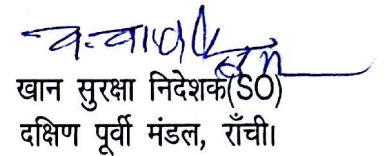 खान सुरक्षा निदेशक(SO)
दक्षिण पूर्वी मंडल, राँची।